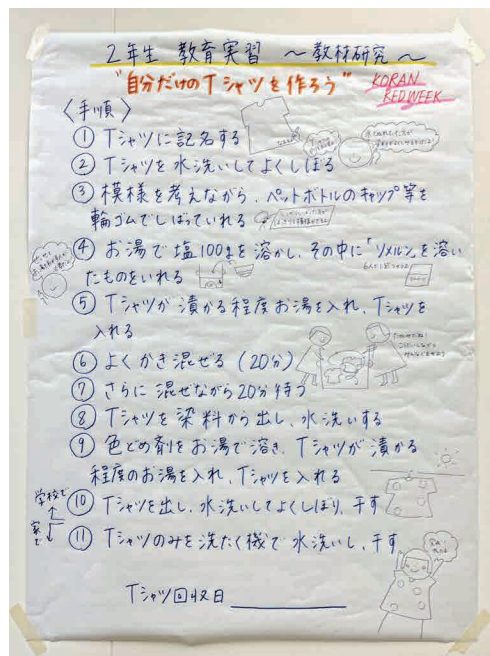 2年生 教育実習 ～教材研究～
"自分だけのTシャツを作ろう"
KORAN
REDWEEK
〈手順〉
① Tシャツに記名する
② Tシャツを水洗いしてよくしぼる
③ 模様を考えながら、ペットボトルのキャップ等を
輪ゴムでしばっていれる
④ お湯で塩100gを溶かし、その中に「ソメルン」を溶い
たものをいれる
⑤ Tシャツが漬かる程度お湯を入れ、Tシャツを
入れる
⑥ よくかき混ぜる（20分）
⑦ さらに混ぜながら20分待つ
⑧ Tシャツを染料から出し、水洗いする
⑨ 色どめ剤をお湯で溶き、Tシャツが漬かる
程度のお湯を入れ、Tシャツを入れる
学校で
⑩ Tシャツを出し、水洗いしてよくしぼり、干す
家で
⑪ Tシャツのみを洗たく機で水洗いし、干す
Tシャツ回収日